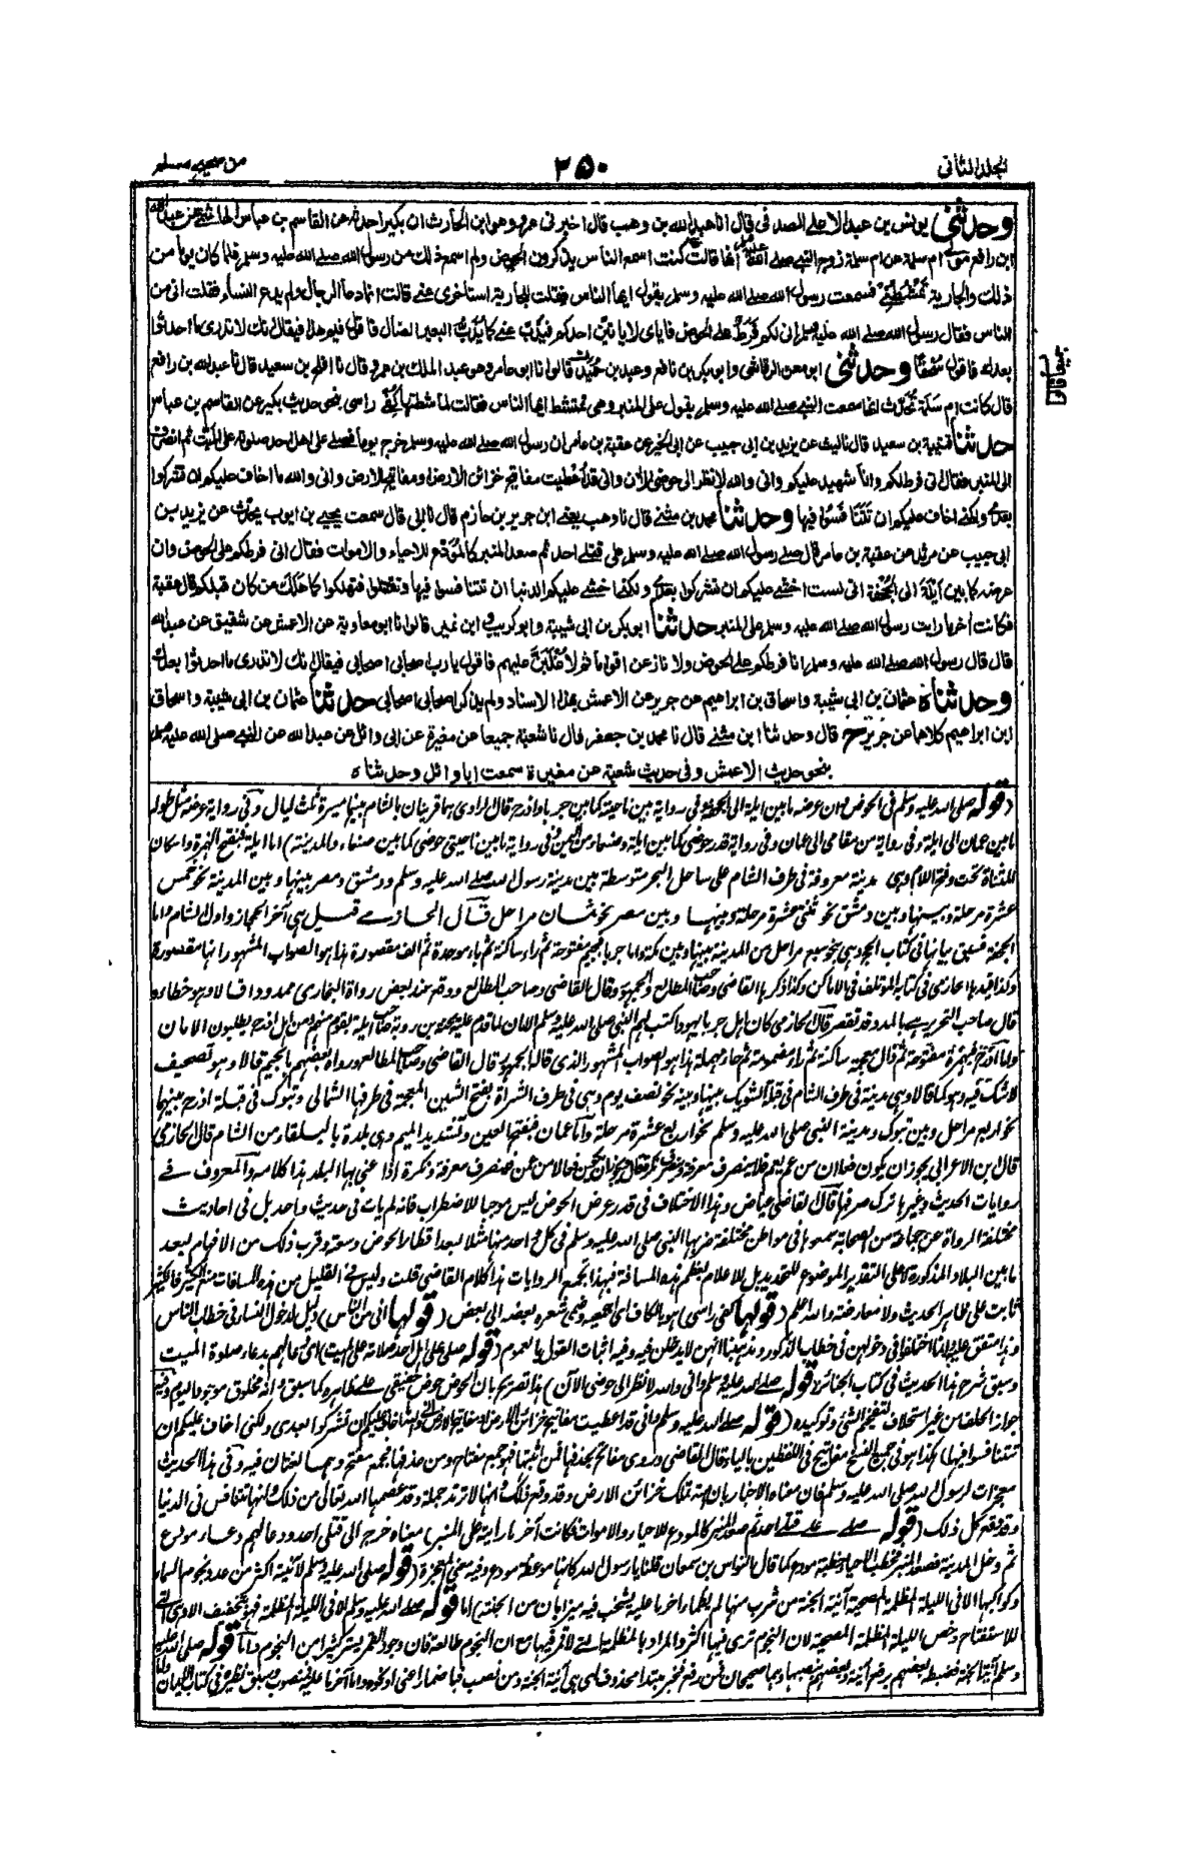 المجلد الثاني
٢٥٠
من صحيح مسلم
وحدثني يونس بن عبد الاعلى الصدفي قال انا عبد الله بن وهب قال اخبرني عمرو وهو ابن الحارث ان بكيرا حدثه عن القاسم بن عباس الهاشمي عن عبد الله
ابن رافع مولى ام سلمة عن ام سلمة زوج النبي صلى الله عليه انها قالت كنت اسمع الناس يذكرون الحوض ولم اسمع ذلك من رسول الله صلى الله عليه وسلم فلما كان يوما من
ذلك والجارية تمشطني فسمعت رسول الله صلى الله عليه وسلم يقول ايها الناس فقلت للجارية استاخري عني قالت انما دعا الرجال ولم يدع النساء فقلت اني من
الناس فقال رسول الله صلى الله عليه وسلم اني لكم فرط على الحوض فاياي لا ياتين احدكم فيذب عني كما يذب البعير الضال فاقول فيم هذا فيقال انك لا تدري ما احدثوا
بعدك فاقول سحقا وحدثني ابو معن الرقاشي وابو بكر بن نافع وعبد بن حميد قالوا نا ابو عامر وهو عبد الملك بن عمرو قال نا افلح بن سعيد قال نا عبد الله بن رافع
قال كانت ام سلمة تحدث انها سمعت النبي صلى الله عليه وسلم يقول على المنبر وهي تمتشط ايها الناس فقالت لماشطتها كفي راسي بنحو حديث بكير عن القاسم بن عباس
حدثنا قتيبة بن سعيد قال نا ليث عن يزيد بن ابي حبيب عن ابي الخير عن عقبة بن عامر ان رسول الله صلى الله عليه وسلم خرج يوما فصلى على اهل احد صلوته على الميت ثم انصرف
الى المنبر فقال اني فرط لكم وانا شهيد عليكم واني والله لانظر الى حوضي الان واني قد اعطيت مفاتيح خزائن الارض او مفاتيح الارض واني والله ما اخاف عليكم ان تشركوا
بعدي ولكني اخاف عليكم ان تتنافسوا فيها وحدثنا محمد بن مثنى قال نا وهب يعني ابن جرير بن حازم قال نا ابي قال سمعت يحيى بن ايوب يحدث عن يزيد بن
ابي حبيب عن مرثد عن عقبة بن عامر قال صلى رسول الله صلى الله عليه وسلم على قتلى احد ثم صعد المنبر كالمودع للاحياء والاموات فقال اني فرطكم على الحوض وان
عرضه كما بين ايلة الى الجحفة اني لست اخشى عليكم ان تشركوا بعدي ولكني اخشى عليكم الدنيا ان تتنافسوا فيها وتقتتلوا فتهلكوا كما هلك من كان قبلكم قال عقبة
فكانت اخر ما رايت رسول الله صلى الله عليه وسلم على المنبر حدثنا ابو بكر بن ابي شيبة وابو كريب وابن نمير قالوا نا ابو معاوية عن الاعمش عن شقيق عن عبد الله
قال قال رسول الله صلى الله عليه وسلم انا فرطكم على الحوض ولانازعن اقواما ثم لاغلبن عليهم فاقول يا رب اصحابي اصحابي فيقال انك لا تدري ما احدثوا بعدك
وحدثناه عثمان بن ابي شيبة واسحاق بن ابراهيم عن جرير عن الاعمش بهذا الاسناد ولم يذكر اصحابي اصحابي حدثنا عثمان بن ابي شيبة واسحاق
ابن ابراهيم كلاهما عن جرير ح قال وحدثنا ابن مثنى قال نا محمد بن جعفر قال نا شعبة جميعا عن مغيرة عن ابي وائل عن عبد الله عن النبي صلى الله عليه وسلم
بنحو حديث الاعمش وفي حديث شعبة عن مغيرة سمعت ابا وائل وحدثناه
(قوله صلى الله عليه وسلم في الحوض وان عرضه ما بين ايلة الى الجحفة وفي رواية بين ناحيتيه كما بين جربا واذرح قال الراوي هما قريتان بالشام بينهما مسيرة ثلث ليال وفي رواية عرضه مثل طوله
ما بين عمان الى ايلة وفي رواية من مقامي الى عمان وفي رواية قدر حوضي كما بين ايلة وصنعاء من اليمن وفي رواية ما بين ناحيتي حوضي كما بين صنعاء والمدينة) اما ايلة فبفتح الهمزة واسكان
المثناة تحت وفتح اللام وهي مدينة معروفة في طرف الشام على ساحل البحر متوسطة بين مدينة رسول الله صلى الله عليه وسلم ودمشق ومصر بينها وبين المدينة نحو خمس
عشرة مرحلة وبينها وبين دمشق نحو ثنتي عشرة مرحلة وبينها وبين مصر نحو ثمان مراحل قال الحازمي قيل هي آخر الحجاز واول الشام واما
الجحفة فسبق بيانها في كتاب الحج وهي بنحو سبع مراحل من المدينة بينها وبين مكة واما جربا فبجيم مفتوحة ثم راء ساكنة ثم باء موحدة ثم الف مقصورة هذا هو الصواب المشهور انها مقصورة
وكذا قيدها الحازمي في كتابه المؤتلف في الاماكن وكذا ذكرها القاضي وصاحب المطالع والجمهور وقال القاضي وصاحب المطالع ووقع عند بعض رواة البخاري ممدودا قالا وهو خطاء و
قال صاحب التحرير هي بالمد وقد تقصر قال الحازمي كان اهل جربا يهودا كتب لهم النبي صلى الله عليه وسلم الامان لما قدم عليه يحنة بن روبة صاحب ايلة بقوم منهم ومن اهل اذرح يطلبون الامان
واما اذرح فبهمزة مفتوحة ثم ذال معجمة ساكنة ثم راء مضمومة ثم حاء مهملة هذا هو الصواب المشهور الذي قاله الجمهور قال القاضي وصاحب المطالع ورواه بعضهم بالجيم قالا وهو تصحيف
لا شك فيه وهو كما قالا وهي مدينة في طرف الشام في قبلة الشوبك بينها وبينه نحو نصف يوم وهي في طرف الشراة بفتح الشين المعجمة في طرفها الشمالي وتبوك في قبلة اذرح بينهما
نحو اربع مراحل وبين تبوك ومدينة النبي صلى الله عليه وسلم نحو اربع عشرة مرحلة واما عمان فبفتح العين وتشديد الميم وهي بلدة بالبلقاء من الشام قال الحازمي
قال ابن الاعرابي يجوز ان يكون فعلان من عم يعم فلا ينصرف معرفة وينصرف نكرة قال ويجوز ان يكون فعالا من عمن فينصرف معرفة ونكرة اذا عنى بها البلد هذا كلامه والمعروف في
روايات الحديث وغيرها ترك صرفها قال القاضي عياض وهذا الاختلاف في قدر عرض الحوض ليس موجبا للاضطراب فانه لم يات في حديث واحد بل في احاديث
مختلفة الرواة عن جماعة من الصحابة سمعوها في مواطن مختلفة ضربها النبي صلى الله عليه وسلم في كل واحد منها مثلا لبعد اقطار الحوض وسعته وقرب ذلك من الافهام لبعد
ما بين البلاد المذكورة لا على التقدير الموضوع للتحديد بل للاعلام بعظم هذه المسافة فبهذا تجمع الروايات هذا كلام القاضي قلت وليس في القليل من هذه المسافات منع الكثير فالكثير
ثابت على ظاهر الحديث ولا معارضة والله اعلم (قولها كفي راسي) هو بالكاف اي اجمعيه وضمي شعره بعضه الى بعض (قولها اني من الناس) دليل لدخول النساء في خطاب الناس
وهذا متفق عليه وانما اختلفوا في دخولهن في خطاب الذكور ومذهبنا انهن لا يدخلن فيه وفيه اثبات القول بالعموم (قوله صلى على اهل احد صلاته على الميت) اي دعا لهم بدعاء صلوة الميت
وسبق شرح هذا الحديث في كتاب الجنائز (قوله صلى الله عليه وسلم واني والله لانظر الى حوضي الآن) هذا تصريح بان الحوض حوض حقيقي على ظاهره كما سبق وانه مخلوق موجود اليوم وفيه
جواز الحلف من غير استحلاف لتفخيم الشئ وتوكيده (قوله صلى الله عليه وسلم واني قد اعطيت مفاتيح خزائن الارض او مفاتيح الارض اني والله ما اخاف عليكم ان تشركوا بعدي ولكني اخاف عليكم ان
تتنافسوا فيها) هكذا هو في جميع النسخ مفاتيح في اللفظين بالياء قال القاضي وروي مفاتح بحذفها فمن اثبتها فهو جمع مفتاح ومن حذفها فجمع مفتح وهما لغتان فيه وفي هذا الحديث
معجزات لرسول الله صلى الله عليه وسلم فان معناه الاخبار بان امته تملك خزائن الارض وقد وقع ذلك وانها لا ترتد جملة وقد عصمها الله تعالى من ذلك وانها تتنافس في الدنيا
وقد وقع كل ذلك (قوله صلى على قتلى احد ثم صعد المنبر كالمودع للاحياء والاموات فكانت آخر ما رايته على المنبر) معناه خرج الى قتلى احد ودعا لهم دعاء مودع
ثم دخل المدينة فصعد المنبر فخطب الاحياء خطبة مودع كما قال النواس بن سمعان قلنا يا رسول الله كانها موعظة مودع وفيه معنى المعجزة (قوله صلى الله عليه وسلم لآنيته اكثر من عدد نجوم السماء
وكواكبها الا في الليلة المظلمة المصحية آنية الجنة من شرب منها لم يظما آخر ما عليه يشخب فيه ميزابان من الجنة) اما قوله صلى الله عليه وسلم الا في الليلة المظلمة فهو بتخفيف الا وهي التي
للاستفتاح وخص الليلة المظلمة المصحية لان النجوم ترى فيها اكثر والمراد بالمظلمة التي لا قمر فيها مع ان النجوم طالعة فان وجود القمر يستر كثيرا من النجوم واما قوله صلى الله عليه
وسلم آنية الجنة فضبطه بعضهم برفع آنية وبعضهم بنصبها وهما صحيحان فمن رفع فخبر مبتدا محذوف اي هي آنية الجنة ومن نصب فباضمار اعني او نحوه واما آخر ما عليه فمنصوب وسبق نظيره في كتاب الايمان واما